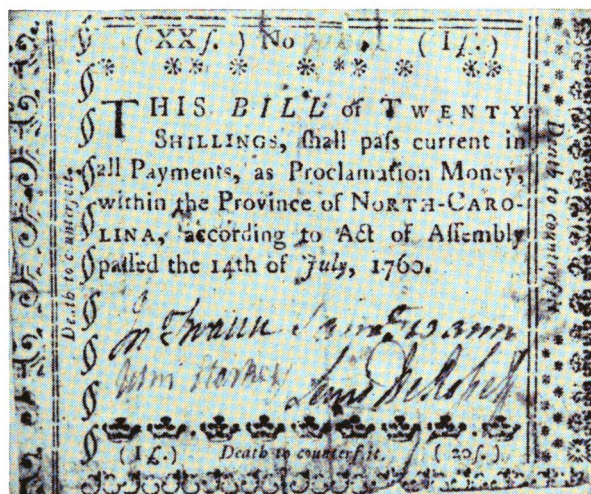 (XXſ.) No (1ſ.)
THIS BILL of TWENTY
SHILLINGS, ſhall paſs current in
all Payments, as Proclamation Money,
within the Province of NORTH-CARO-
LINA, according to Act of Aſſembly
paſſed the 14th of July, 1760.
Death to counterfeit.
Death to counterfeit.
Jn Swann Sam Swann
Lewis DeRoſſett
(1£.) Death to counterfeit. (20ſ.)